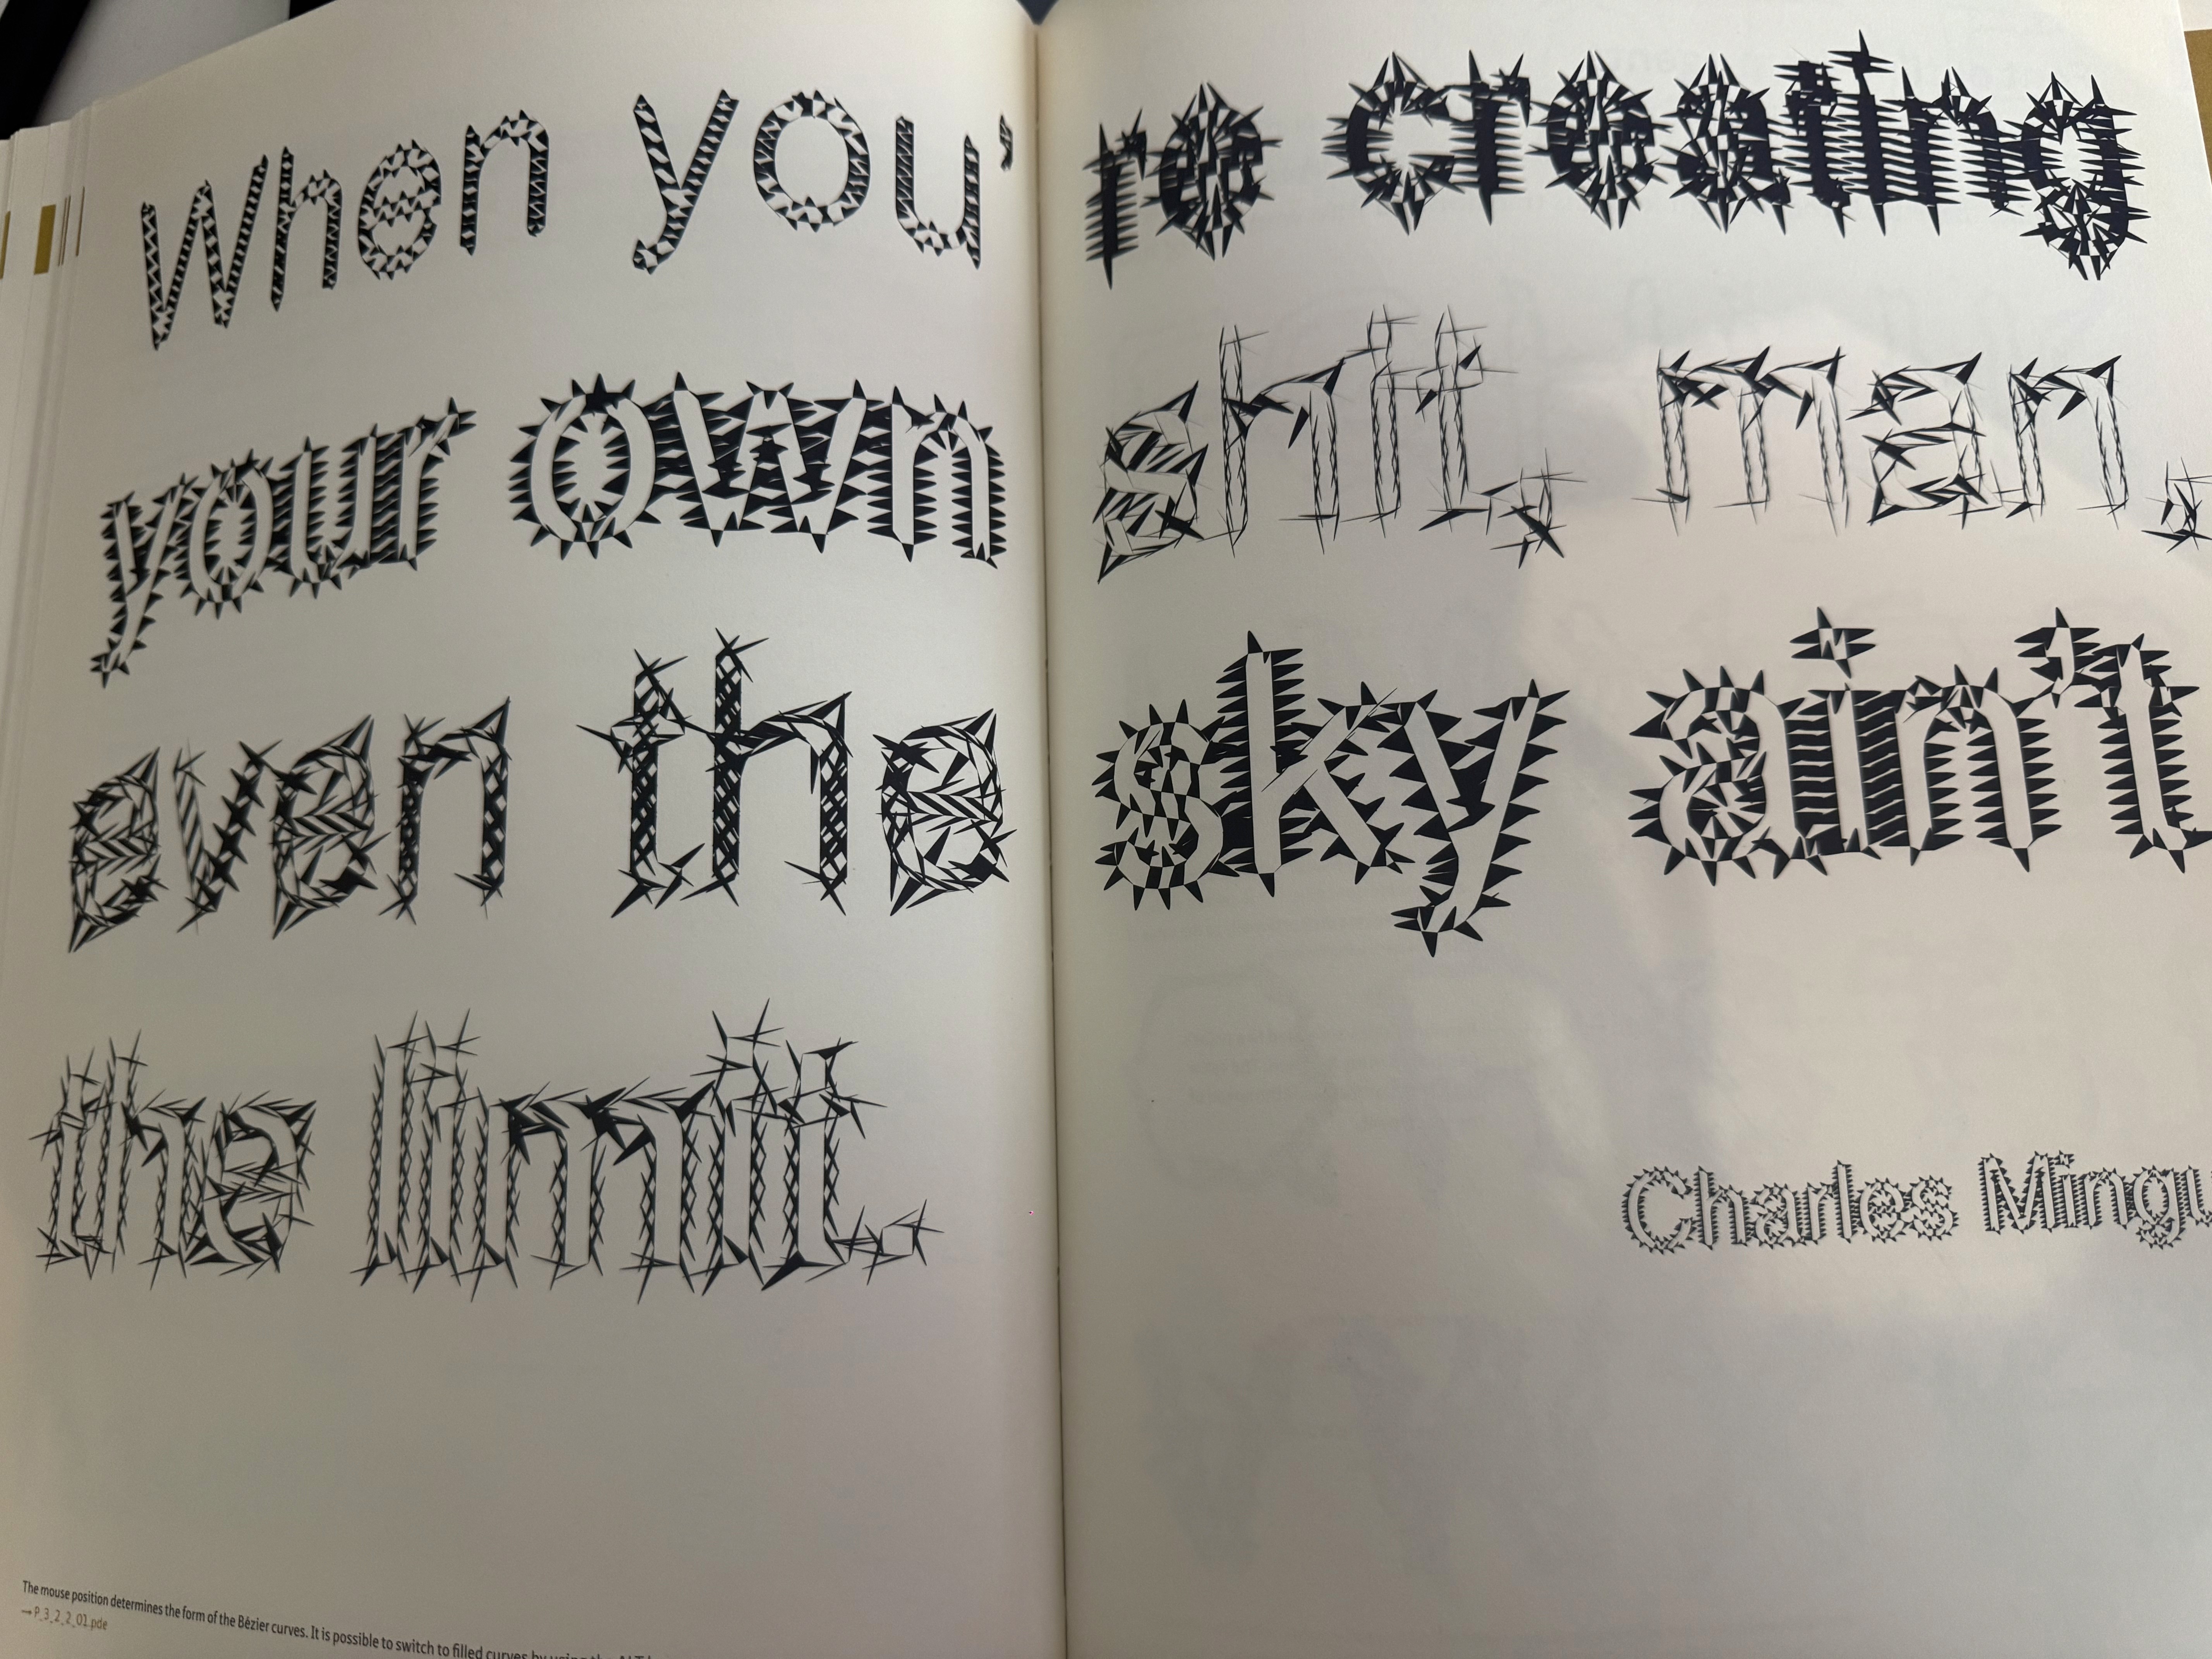 When you're creating
your own shit, man,
even the sky ain't
the limit.
Charles Mingu
The mouse position determines the form of the Bézier curves. It is possible to switch to filled curves by using the ALT
→ P_3_2_2_01.pde